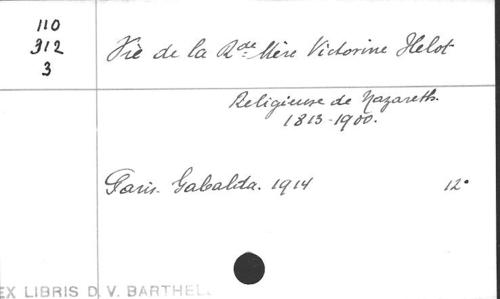 110
912
3
Vie de la Rde Mère Victorine Helot
Religieuse de Nazareth.
1813-1900.
Paris. Gabalda. 1914 12°
EX LIBRIS D. V. BARTHEL